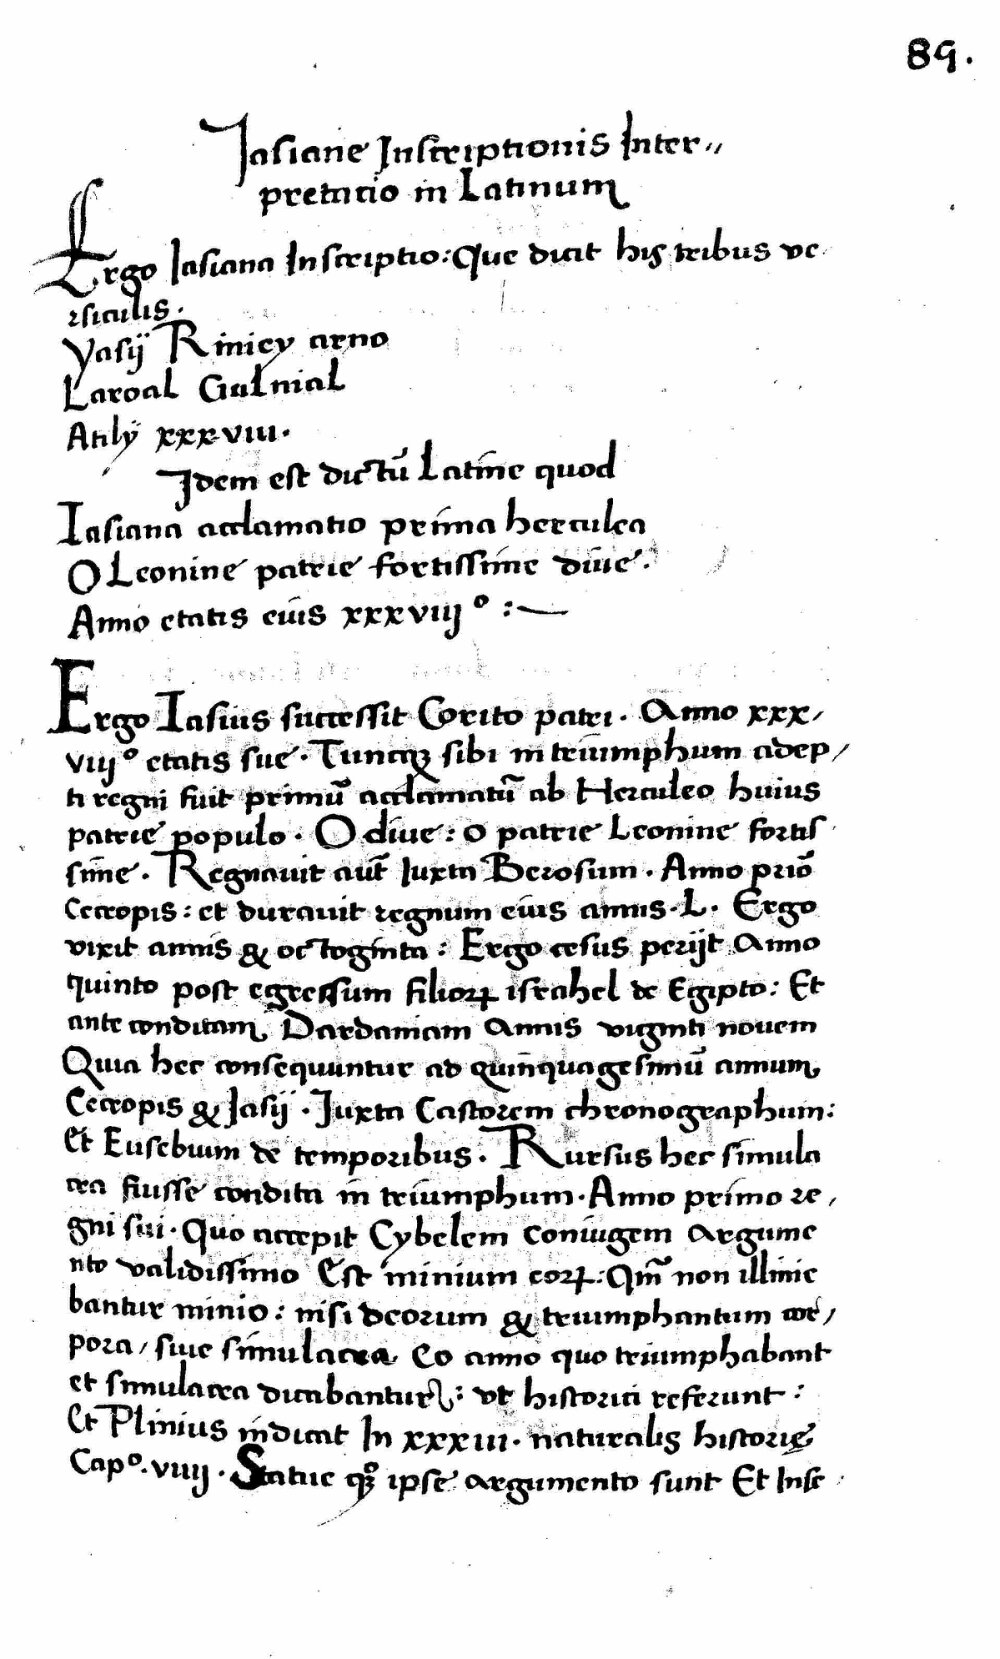 89.
Iasiane Inscriptionis Inter〃
pretatio in Latinum
Ergo Iasiana Inscriptio: Que dicit his tribus ve
rsiculis.
Vasij Riniey arno
Laroal Gulnial
Atily xxxviii.
Idem est dictū Latine quod
Iasiana acclamatio prima herculea
O Leonine patrie fortissime diue.
Anno etatis eius xxxviiijº :—
Ergo Iasius successit Corito patri. Anno xxx/
viiijº etatis sue. Tuncqꝫ sibi in triumphum adep/
ti regni fuit primū acclamatū ab Herculeo huius
patrie populo. O diue: o patrie Leonine fortis
sime. Regnauit aut̄ Iuxta Berosum. Anno priō
Cecropis: et durauit regnum eius annis. L. Ergo
vixit annis & octoginta: Ergo cesus perijt Anno
quinto post egressum filioꝝ israhel de Egipto: Et
ante conditam Dardaniam Annis viginti nouem
Quia hec consequuntur ad quinquagesimū annum
Cecropis & Jasij. Iuxta Castorem chronographum:
Et Eusebium de temporibus. Rursus hec simula
cra fuisse condita in triumphum. Anno primo re/
gni sui. Quo accepit Cybelem coniugem Argume
nto validissimo Est minium eoꝝ: Qm̄ non illinie
bantur minio: nisi deorum & triumphantum cor/
pora/ siue simulacra Eo anno quo triumphabant
et simulacra dicabantur: vt historici referunt:
Et Plinius indicat In xxxiii. naturalis historię
Capº. viiij. Statue qꝫ ipse argumento sunt Et Insc